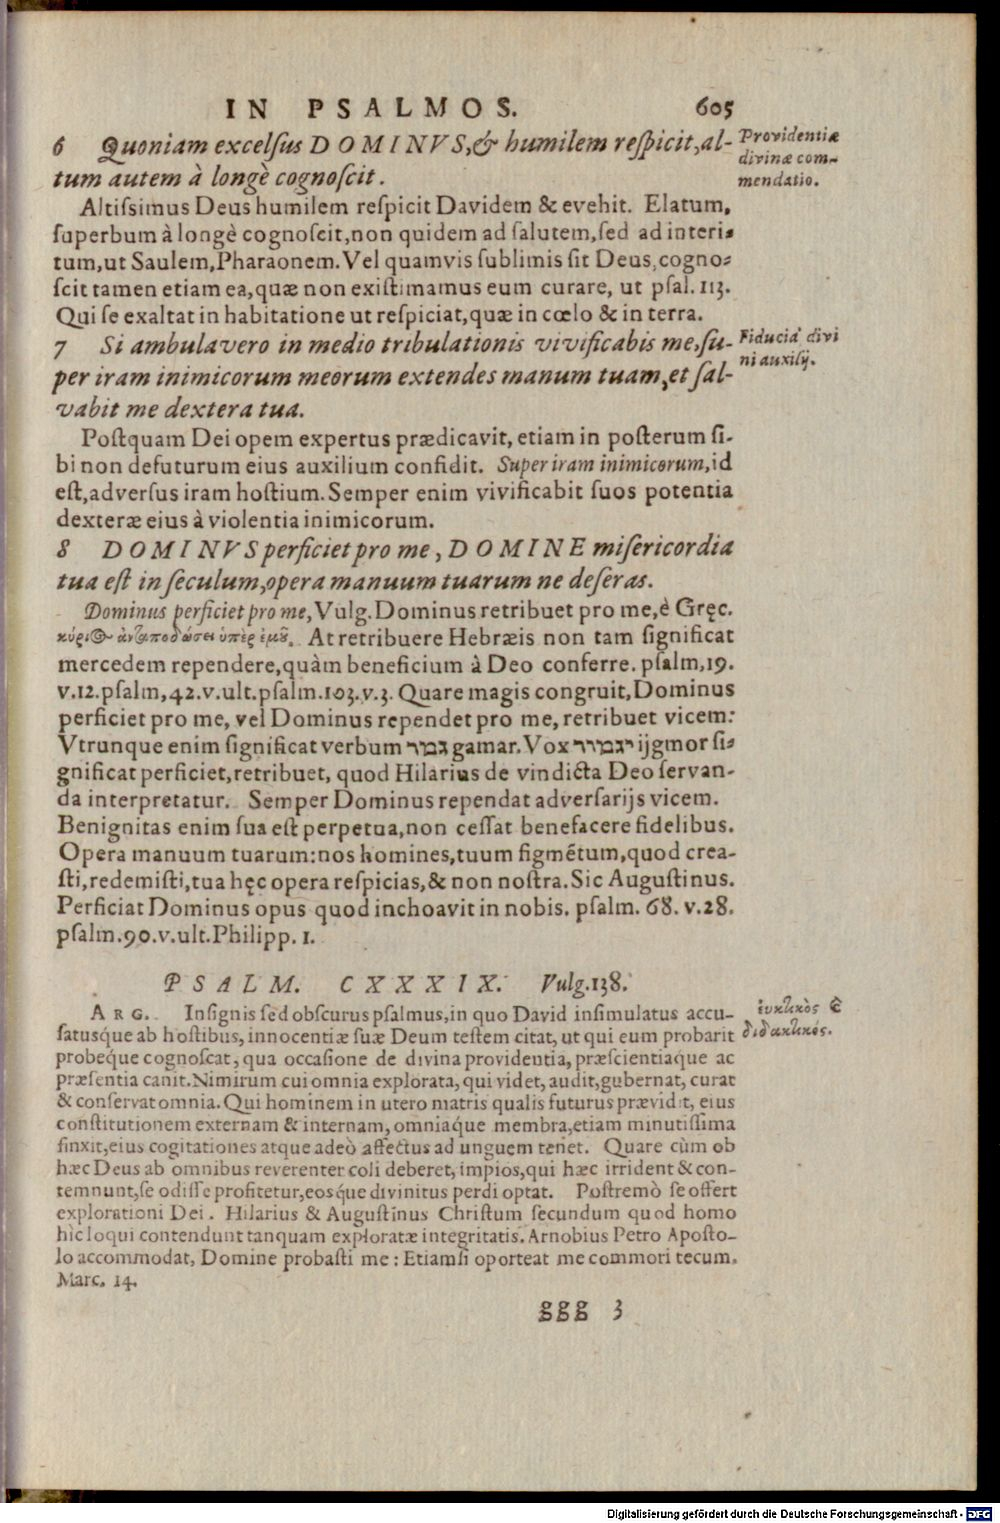 IN PSALMOS. 605
6 Quoniam excelſus DOMINVS, & humilem reſpicit, al-
tum autem à longè cognoſcit.
Providentiæ
divinæ com-
mendatio.
Altiſsimus Deus humilem reſpicit Davidem & evehit. Elatum,
ſuperbum à longè cognoſcit, non quidem ad ſalutem, ſed ad interi-
tum, ut Saulem, Pharaonem. Vel quamvis ſublimis ſit Deus, cogno-
ſcit tamen etiam ea, quæ non exiſtimamus eum curare, ut pſal. 113.
Qui ſe exaltat in habitatione ut reſpiciat, quæ in cœlo & in terra.
7 Si ambulavero in medio tribulationis vivificabis me, ſu-
per iram inimicorum meorum extendes manum tuam, et ſal-
vabit me dextera tua.
Fiducia divi
ni auxilij.
Poſtquam Dei opem expertus prædicavit, etiam in poſterum ſi-
bi non defuturum eius auxilium confidit. Super iram inimicorum, id
eſt, adverſus iram hoſtium. Semper enim vivificabit ſuos potentia
dexteræ eius à violentia inimicorum.
8 DOMINVS perficiet pro me, DOMINE miſericordia
tua eſt in ſeculum, opera manuum tuarum ne deſeras.
Dominus perficiet pro me, Vulg. Dominus retribuet pro me, è Gręc.
κύριος ἀνταποδώσει ὑπὲρ ἐμοῦ. At retribuere Hebræis non tam ſignificat
mercedem rependere, quàm beneficium à Deo conferre. pſalm, 19.
v. 12. pſalm, 42. v. ult. pſalm. 103. v. 3. Quare magis congruit, Dominus
perficiet pro me, vel Dominus rependet pro me, retribuet vicem:
Vtrunque enim ſignificat verbum גמר gamar. Vox יגמור ijgmor ſi-
gnificat perficiet, retribuet, quod Hilarius de vindicta Deo ſervan-
da interpretatur. Semper Dominus rependat adverſarijs vicem.
Benignitas enim ſua eſt perpetua, non ceſſat benefacere fidelibus.
Opera manuum tuarum: nos homines, tuum figmétum, quod crea-
ſti, redemiſti, tua hęc opera reſpicias, & non noſtra. Sic Auguſtinus.
Perficiat Dominus opus quod inchoavit in nobis. pſalm. 68. v. 28.
pſalm. 90. v. ult. Philipp. 1.
PSALM. CXXXIX. Vulg. 138.
εὐκτικὸς &
διδακτικός.
ARG. Inſignis ſed obſcurus pſalmus, in quo David inſimulatus accu-
ſatusque ab hoſtibus, innocentiæ ſuæ Deum teſtem citat, ut qui eum probarit
probeque cognoſcat, qua occaſione de divina providentia, præſcientiaque ac
præſentia canit. Nimirum cui omnia explorata, qui videt, audit, gubernat, curat
& conſervat omnia. Qui hominem in utero matris qualis futurus prævidit, eius
conſtitutionem externam & internam, omniaque membra, etiam minutiſſima
finxit, eius cogitationes atque adeò affectus ad unguem tenet. Quare cùm ob
hæc Deus ab omnibus reverenter coli deberet, impios, qui hæc irrident & con-
temnunt, ſe odiſſe profitetur, eosque divinitus perdi optat. Poſtremò ſe offert
explorationi Dei. Hilarius & Auguſtinus Chriſtum ſecundum quod homo
hîc loqui contendunt tanquam exploratæ integritatis. Arnobius Petro Apoſto-
lo accommodat, Domine probaſti me: Etiamſi oporteat me commori tecum.
Marc. 14.
ggg 3
Digitalisierung gefördert durch die Deutsche Forschungsgemeinschaft - DFG